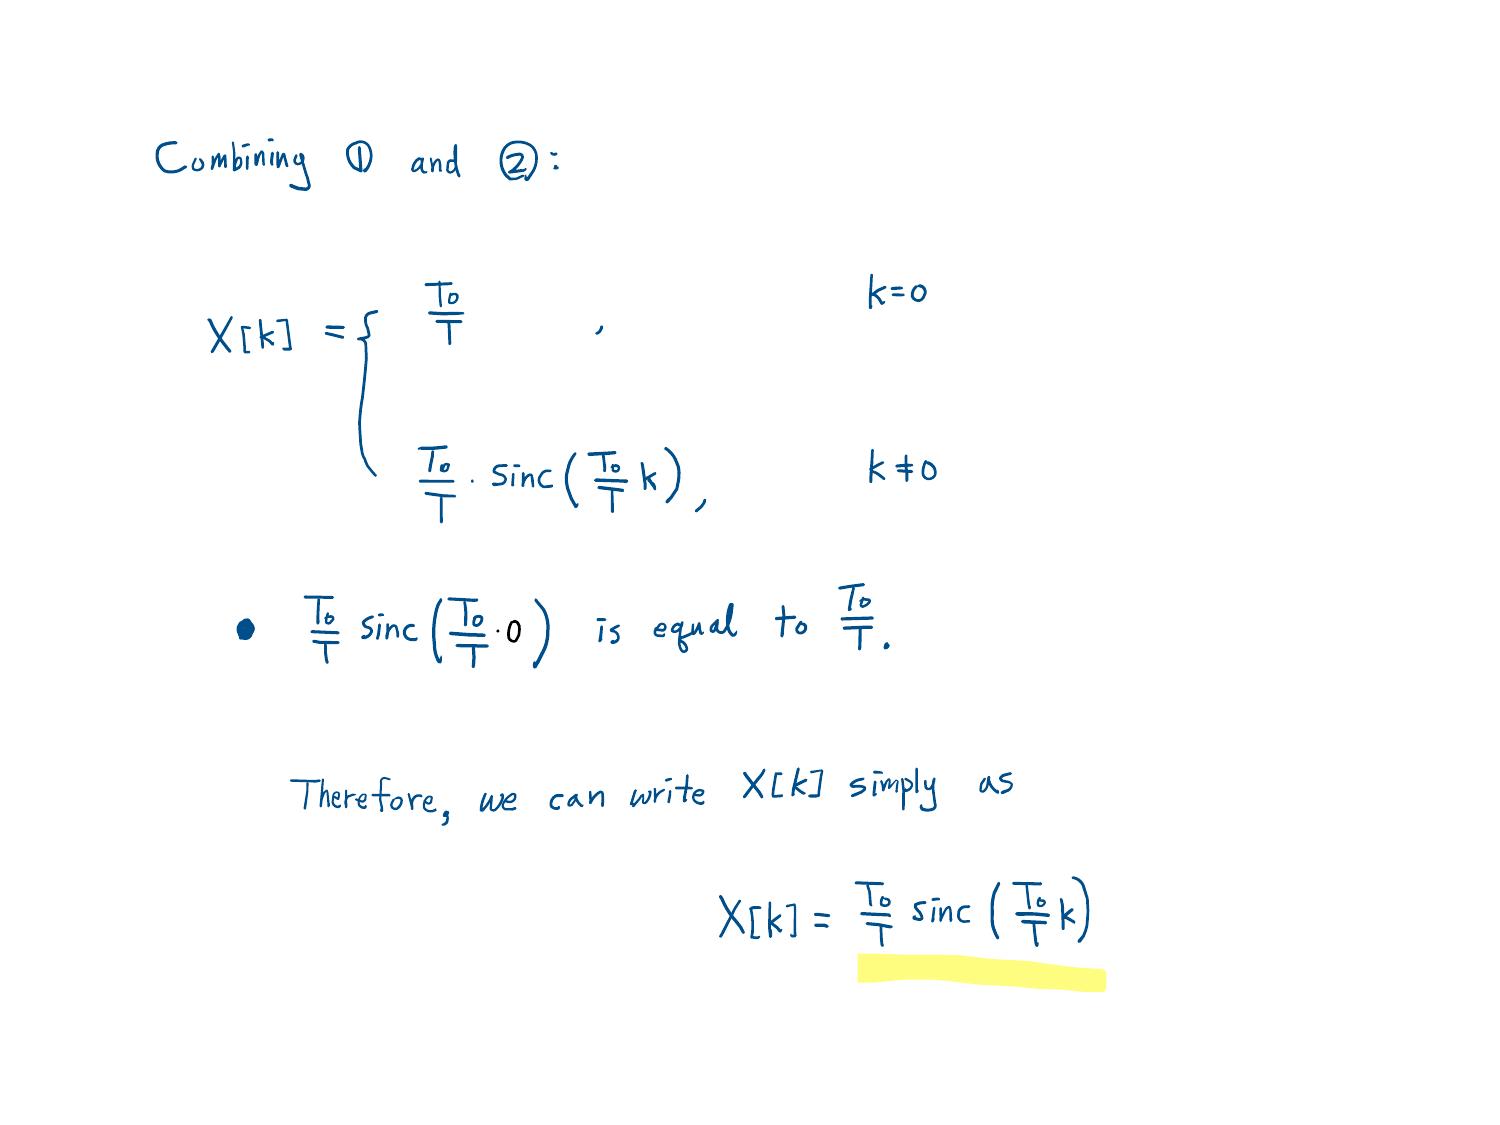 Combining ① and ②:
X[k] = { T₀/T , k=0
T₀/T · sinc(T₀/T k), k≠0
• T₀/T sinc(T₀/T ·0) is equal to T₀/T.
Therefore, we can write X[k] simply as
X[k] = T₀/T sinc(T₀/T k)